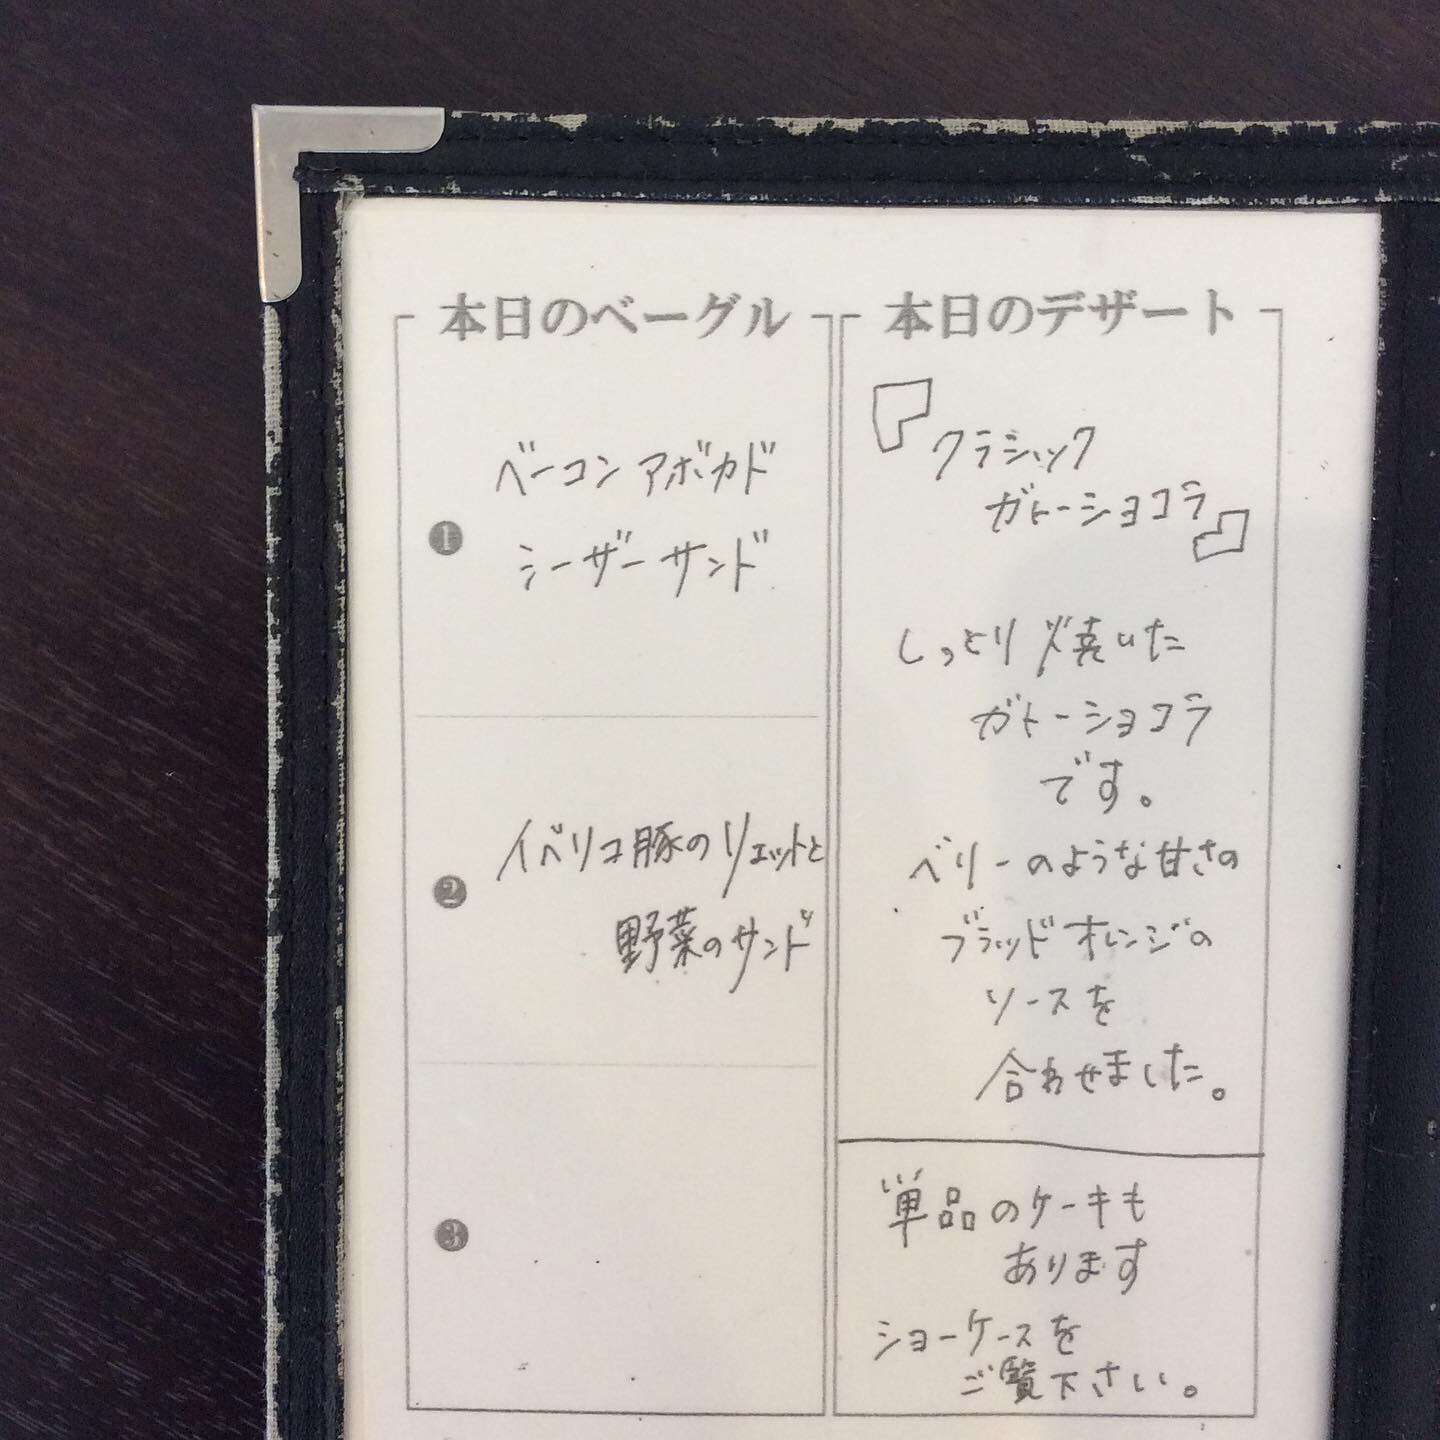 本日のベーグル
❶
ベーコンアボカド
シーザーサンド
❷
イベリコ豚のリエットと
野菜のサンド
❸
本日のデザート
『クラシック
ガトーショコラ』
しっとり焼いた
ガトーショコラ
です。
ベリーのような甘さの
ブラッドオレンジの
ソースを
合わせました。
単品のケーキも
あります
ショーケースを
ご覧下さい。